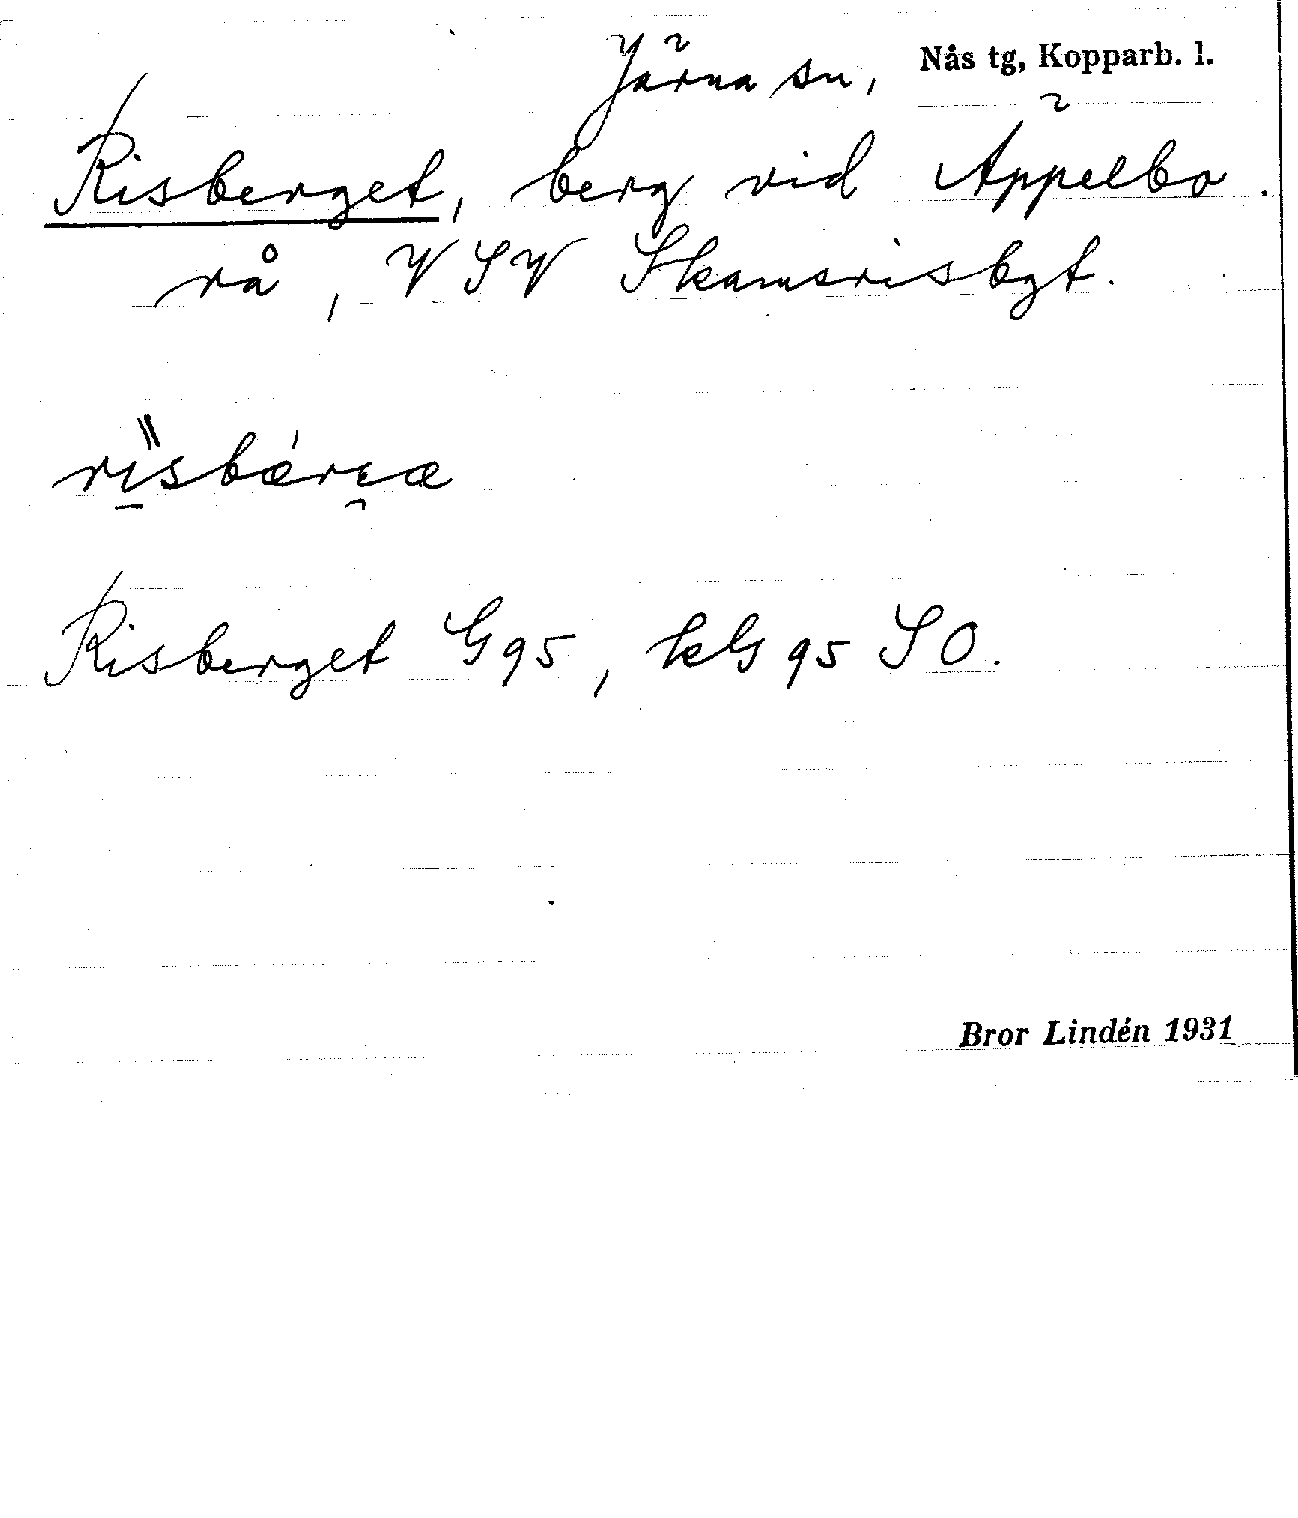 Järna sn, Nås tg, Kopparb. l.
Risberget, berg vid Äppelbo
rå, VSV Skamsrisbgt.
Risberget G95, kG 95 SO.
Bror Lindén 1931